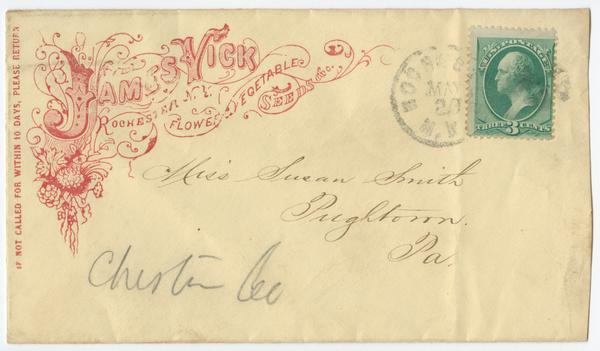 IF NOT CALLED FOR WITHIN 10 DAYS, PLEASE RETURN
TO
JAMES VICK
ROCHESTER N.Y.
FLOWER & VEGETABLE
SEEDS &c.
MAY
20
N.Y.
U.S. POSTAGE
THREE 3 CENTS
Miss Susan Smith
Pughtown.
Pa.
Chester Co